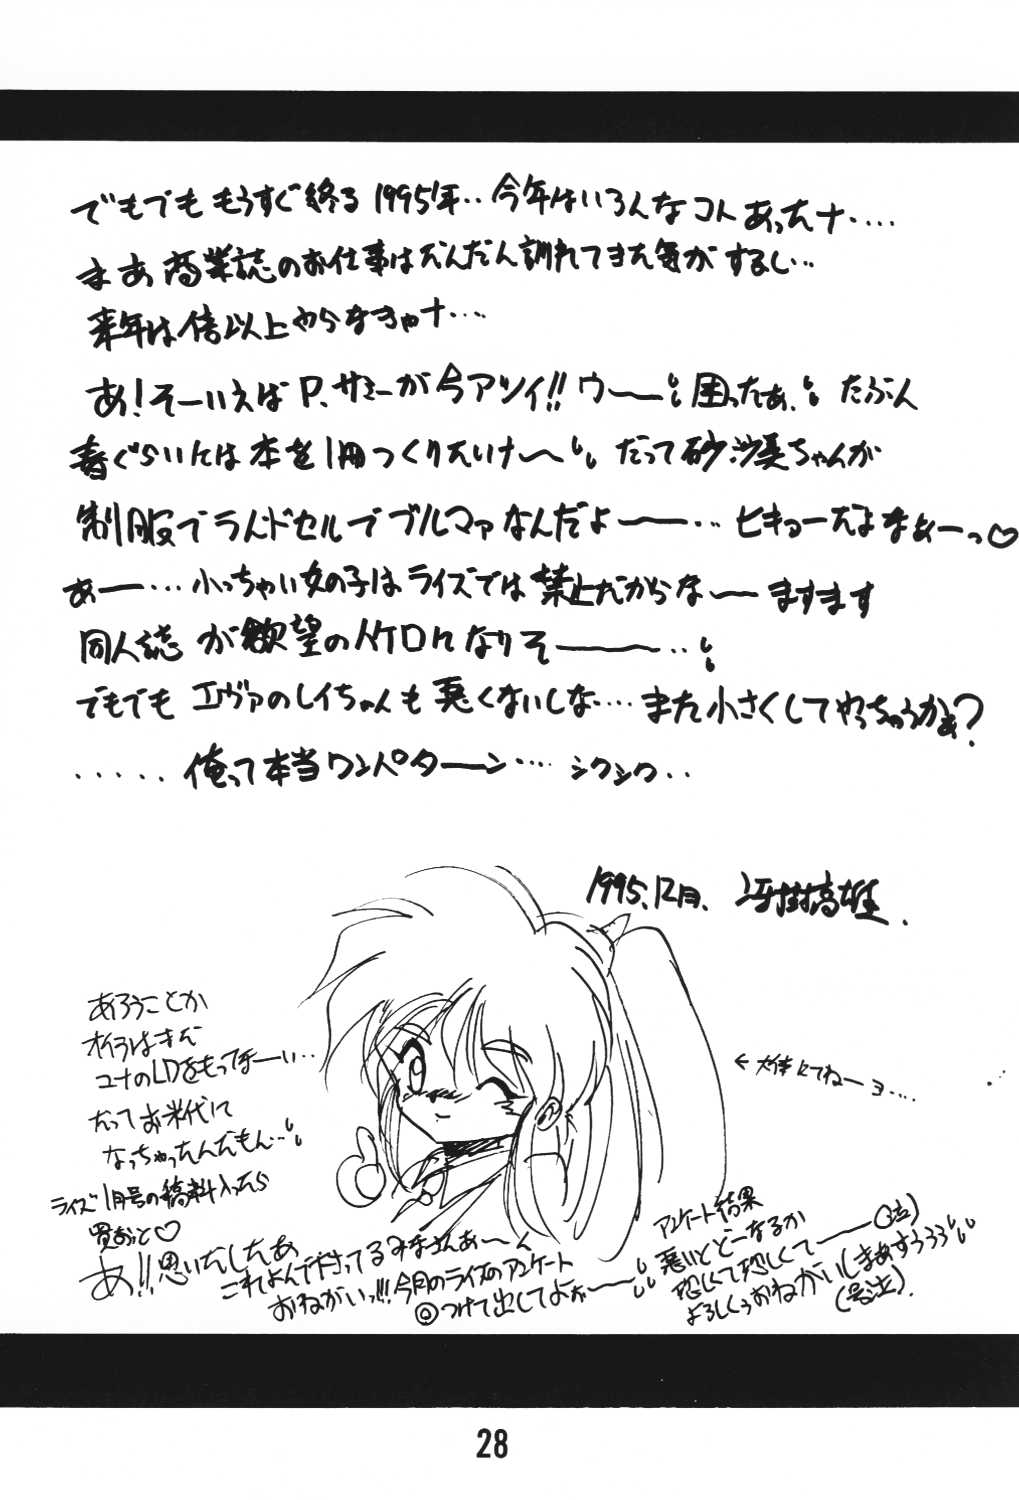 でもでも もうすぐ終る 1995年‥今年はいろんなコトあったナ‥‥
まあ商業誌のお仕事はだんだん訓れてきた気がするし‥
来年は倍以上やらなきゃナ‥‥
あ!そーいえば P.サミーが今アツイ!!ウ――困ったぁ、たぶん
春ぐらいには本を1冊つくりたいナ〜 だって砂沙美ちゃんが
制服でランドセルでブルマァなんだよ――‥ ヒキョーだよなぁーっ♡
あー‥‥小っちゃい女の子はライズでは禁止だからな〜ますます
同人誌が欲望のハケ口になりそ――‥
でもでも エヴァのレイちゃんも悪くないしな‥‥また小さくしてやっちゃうかぁ?
‥‥‥俺って本当ワンパターン‥‥シクシク‥
1995.12月、冴樹高雄.
あろうことか
オイラはまだ
ユナのLDをもってほーい‥
だってお米代に
なっちゃったんだもん‥
ライズ1月号の稿料入ったら
買おっと♡
←メチャにてねーヨ‥‥
あ!!思いだしたぁ
これよんで下さってるみなさんぁ〜
おねがいっ!!!今月のライズのアンケート
◎つけて出してよぉ――
アンケート結果
悪いとどーなるか
恐しくて恐しくて――(泣)
よろしくぅおねがいしまぁすぅぅぅ
(号泣).
28